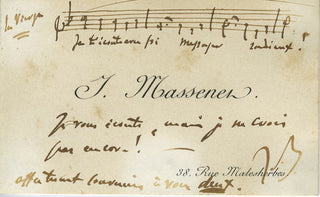 La Vierge
Je t'écoute avec foi messager
J. Massenet.
Je vous écoute, mais je ne crois
pas encore !
38. Rue Malesherbes
affectueux souvenirs à vous deux.